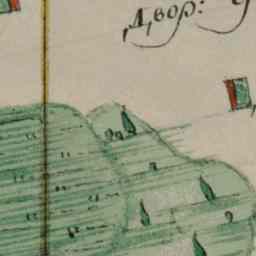 Двор: